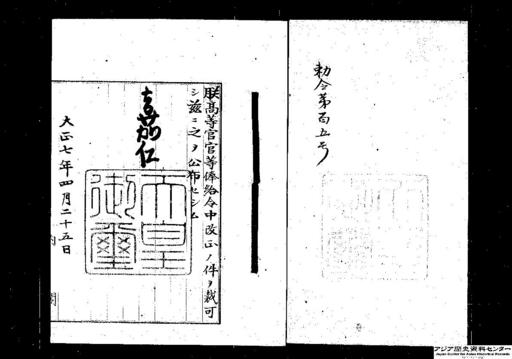 勅令第百五号
朕高等官官等俸給令中改正ノ件ヲ裁可
シ茲ニ之ヲ公布セシム
嘉仁
天皇御璽
大正七年四月二十五日
内閣
アジア歴史資料センター
Japan Center for Asian Historical Records